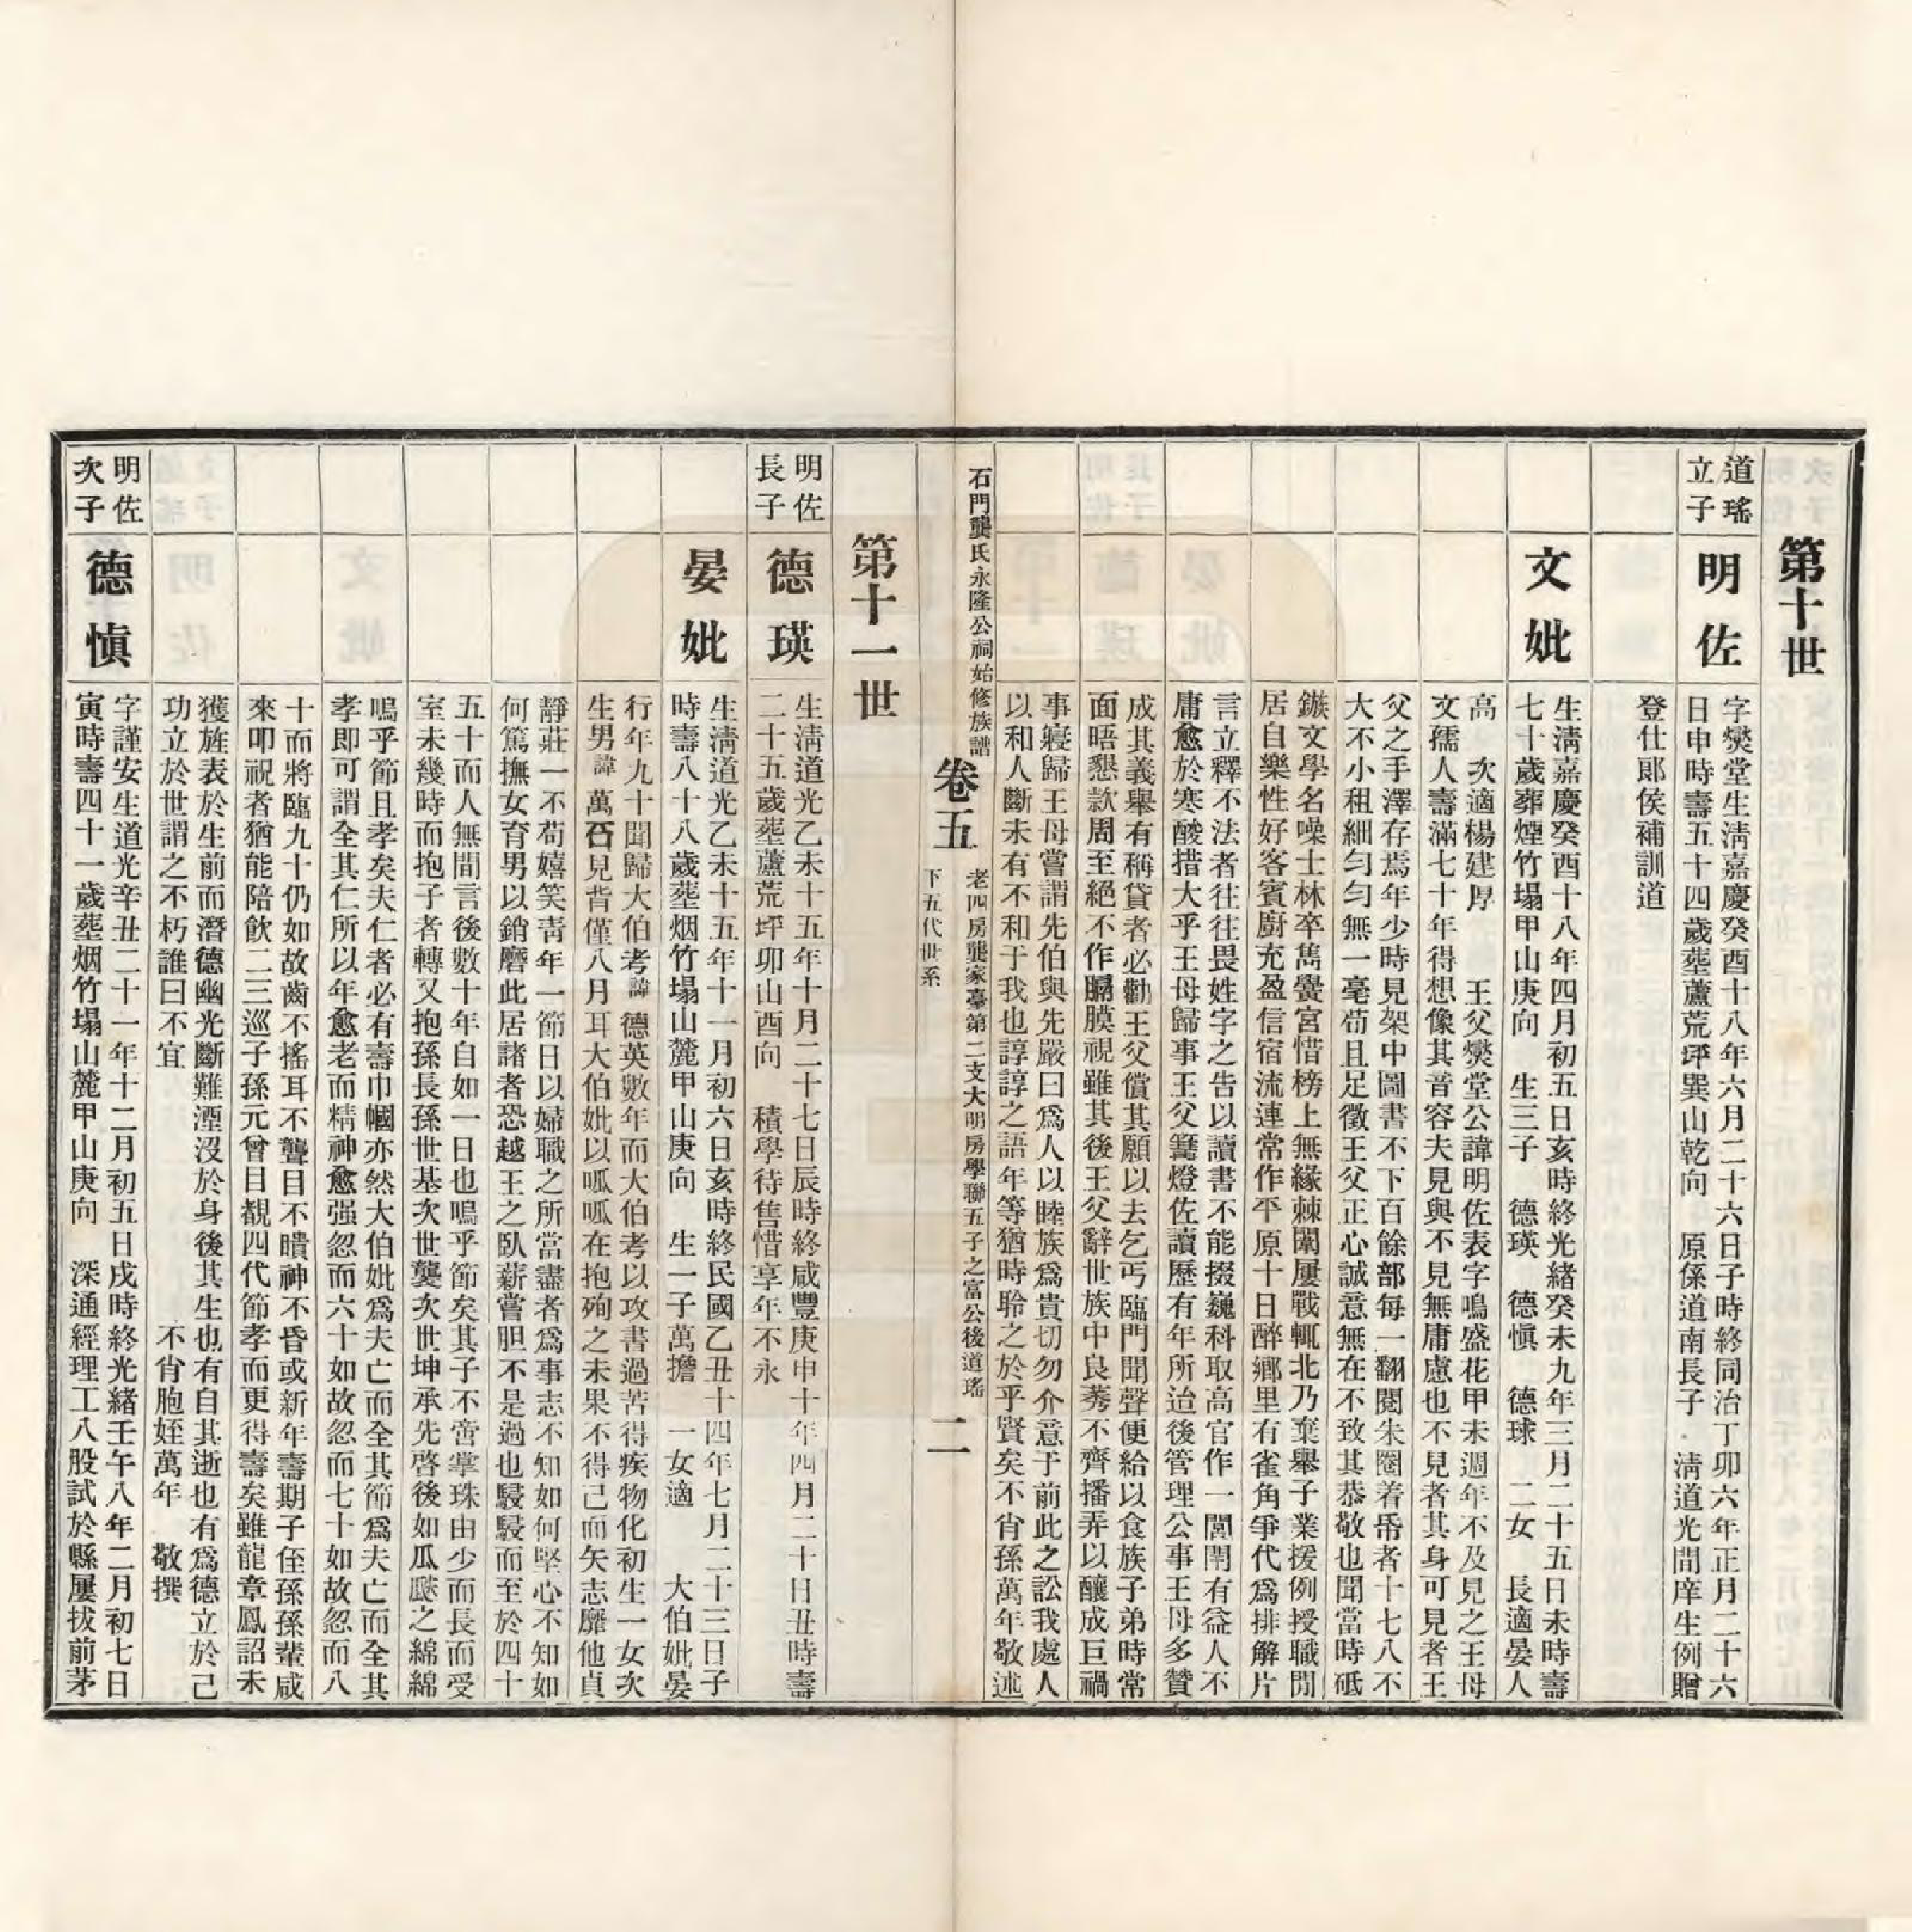 第十世
道瑤
立子
明佐
字爕堂生淸嘉慶癸酉十八年六月二十六日子時終同治丁卯六年正月二十六
日申時壽五十四歲塟蘆荒坪巽山乾向　原係道南長子．淸道光間庠生例贈
登仕郎侯補訓道
文妣
生淸嘉慶癸酉十八年四月初五日亥時終光緒癸未九年三月二十五日未時壽
七十歲葬煙竹塌甲山庚向　生三子　德瑛　德愼　德球　二女　長適晏人
高　次適楊建厚　　王父爕堂公諱明佐表字鳴盛花甲未週年不及見之王母
文孺人壽滿七十年得想像其音容夫見與不見無庸慮也不見者其身可見者王
父之手澤存焉年少時見架中圖書不下百餘部每一翻閱朱圈着帋者十七八不
大不小租細勻勻無一毫苟且足徵王父正心誠意無在不致其恭敬也聞當時砥
鏃文學名噪士林卒雋黌宮惜榜上無緣棘闈屢戰輒北乃棄舉子業援例授職閒
居自樂性好客賓廚充盈信宿流連常作平原十日醉鄉里有雀角爭代爲排解片
言立釋不法者往往畏姓字之告以讀書不能掇巍科取高官作一閭閈有益人不
庸愈於寒酸措大乎王母歸事王父篝燈佐讀歷有年所迨後管理公事王母多贊
成其義舉有稱貸者必勸王父償其願以去乞丐臨門聞聲便給以食族子弟時常
面晤懇款周至絕不作膈膜視雖其後王父辭世族中良莠不齊播弄以釀成巨禍
事寢歸王母嘗謂先伯與先嚴曰爲人以睦族爲貴切勿介意于前此之訟我處人
以和人斷未有不和于我也諄諄之語年等猶時聆之於乎賢矣不肯孫萬年敬述
石門龔氏永隆公祠始修族譜
卷五
老四房龔家臺第二支大明房學聯五子之富公後道瑤
下五代世系
二
第十一世
明佐
長子
德瑛
生淸道光乙未十五年十月二十七日辰時終咸豐庚申十年四月二十日丑時壽
二十五歲塟蘆荒坪卯山酉向　積學待售惜享年不永
晏妣
生淸道光乙未十五年十一月初六日亥時終民國乙丑十四年七月二十三日子
時壽八十八歲塟烟竹塌山麓甲山庚向　生一子萬擔　一女適　　大伯妣晏
行年九十聞歸大伯考諱德英數年而大伯考以攻書過苦得疾物化初生一女次
生男諱萬石見背僅八月耳大伯妣以呱呱在抱殉之未果不得已而矢志靡他貞
靜莊一不苟嬉笑靑年一節日以婦職之所當盡者爲事志不知如何堅心不知如
何篤撫女育男以銷磨此居諸者恐越王之臥薪嘗胆不是過也駸駸而至於四十
五十而人無間言後數十年自如一日也鳴乎節矣其子不啻掌珠由少而長而受
室未幾時而抱子者轉又抱孫長孫世基次世龔次世坤承先啓後如瓜瓞之綿綿
鳴乎節且孝矣夫仁者必有壽巾幗亦然大伯妣爲夫亡而全其節爲夫亡而全其
孝即可謂全其仁所以年愈老而精神愈强忽而六十如故忽而七十如故忽而八
十而將臨九十仍如故齒不搖耳不聾目不瞶神不昏或新年壽期子侄孫孫輩咸
來叩祝者猶能陪飲二三巡子孫元曾目覩四代節孝而更得壽矣雖龍章鳳詔未
獲旌表於生前而潛德幽光斷難湮沒於身後其生也有自其逝也有爲德立於己
功立於世謂之不朽誰曰不宜　　　　　　　　不肯胞姪萬年　敬撰
明佐
次子
德愼
字謹安生道光辛丑二十一年十二月初五日戌時終光緒壬午八年二月初七日
寅時壽四十一歲塟烟竹塌山麓甲山庚向　深通經理工八股試於縣屢拔前茅